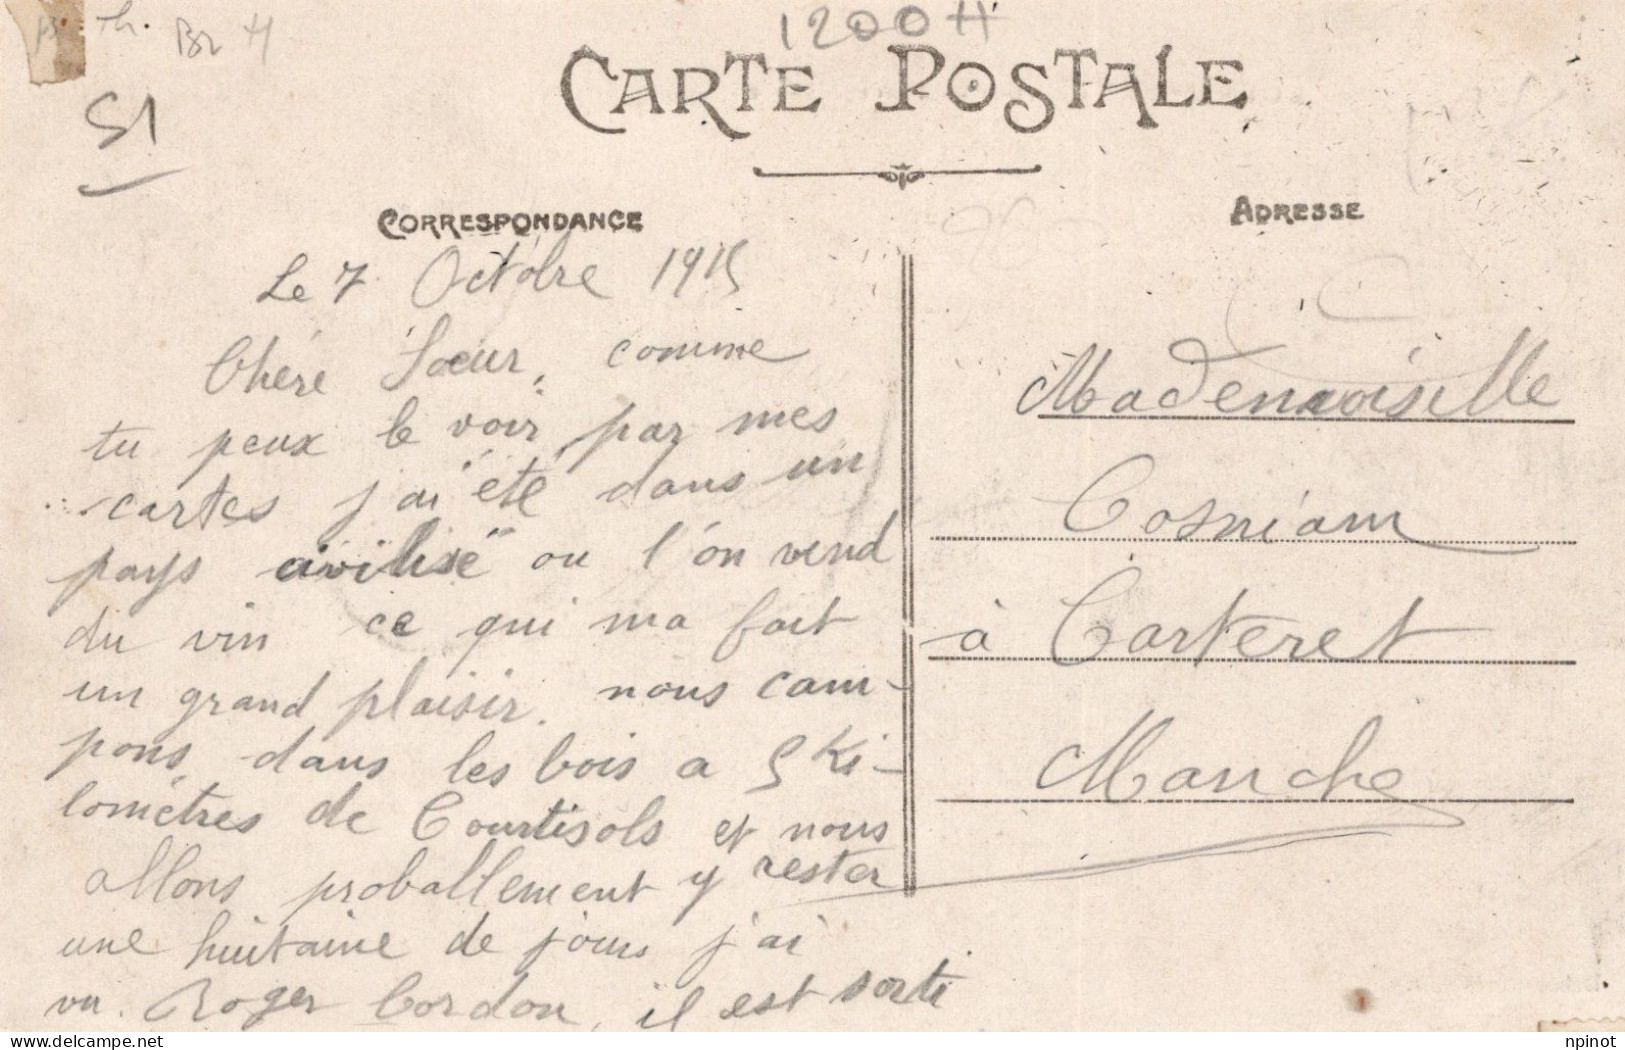 1200 H
Br H
51
CARTE POSTALE
CORRESPONDANCE
ADRESSE
Le 7 Octobre 1915
Chére Soeur, comme
tu peux le voir par mes
cartes j'ai été dans un
pays civilisé ou l'on vend
du vin ce qui ma fait
un grand plaisir. nous cam-
pons dans les bois a 5 Ki-
lométres de Courtisols et nous
allons proballement y rester
une huitaine de jours j'ai
vu. Roger Cordon, il est sorti
Mademoiselle
à Carteret
Manche
delcampe.net
npinot